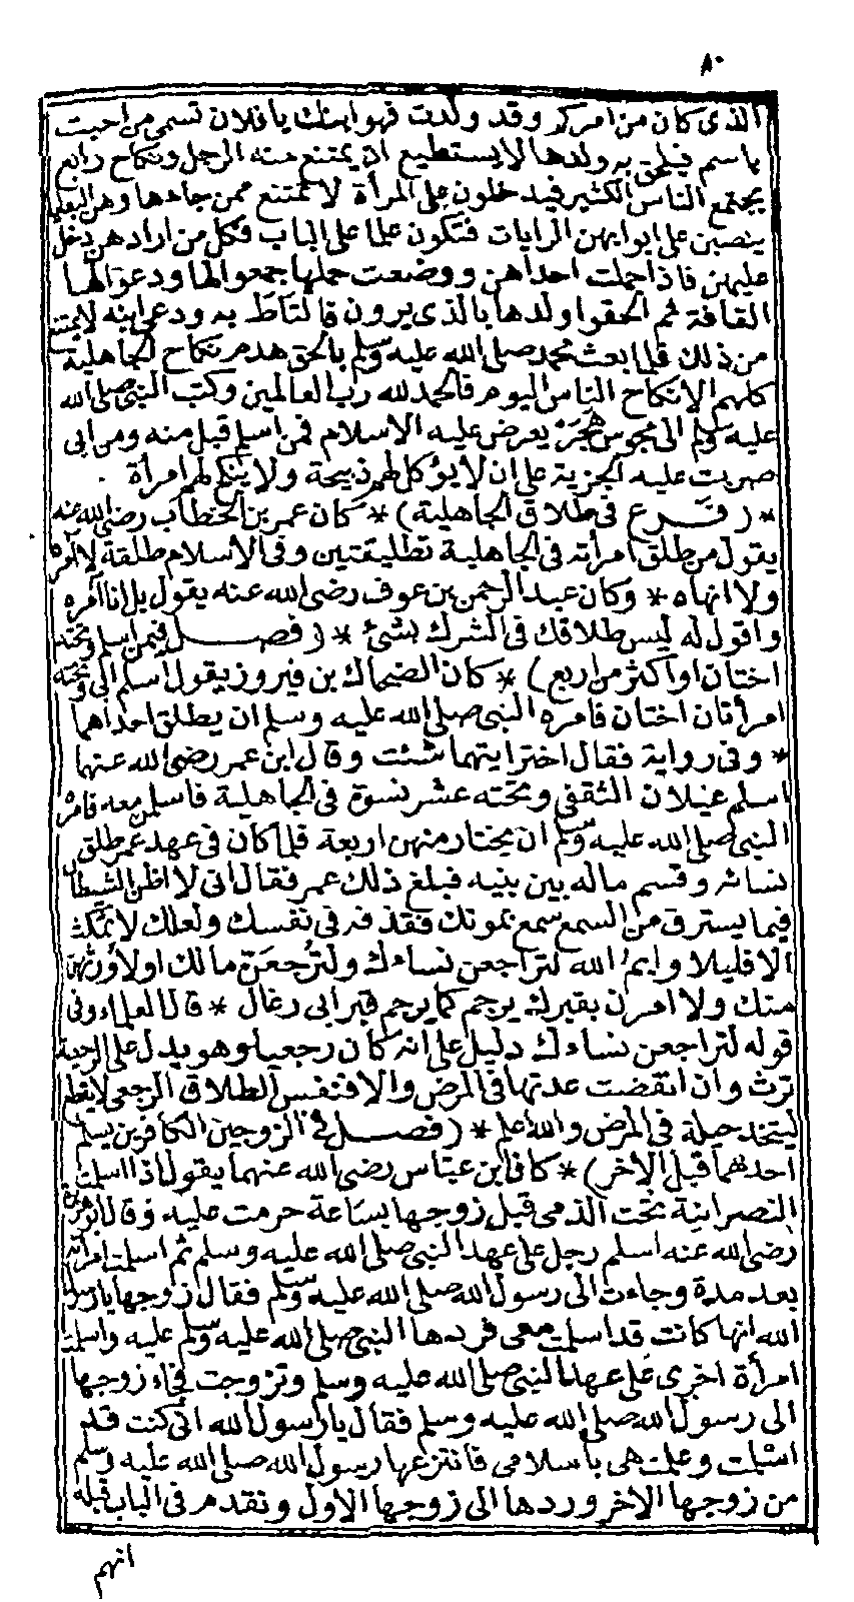 ٨٠
الذى كان من امركم وقد ولدت فهو ابنك يا فلان تسمى من احبت
باسم فيلحق به ولدها لا يستطيع ان يمتنع منه الرجل ونكاح رابع
يجتمع الناس الكثير فيدخلون على المرأة لا تمتنع ممن جاءها وهن البغايا
ينصبن على ابوابهن الرايات فتكون علما على الباب فكل من ارادهن دخل
عليهن فاذا حملت احداهن ووضعت حملها جمعوا لها ودعوا لها
القافة ثم الحقوا ولدها بالذى يرون فالتاط به ودعى ابنه لا يمتنع
من ذلك فلما بعث محمد صلى الله عليه وسلم بالحق هدم نكاح الجاهلية
كلهم الا نكاح الناس اليوم فالحمد لله رب العالمين وكتب النبى صلى الله
عليه وسلم الى مجوس هَجَرَ يعرض عليه الاسلام فمن اسلم قبل منه ومن ابى
ضربت عليه الجزية على ان لا يؤكل لهم ذبيحة ولا ينكح لهم امرأة
* (فــرع فى طلاق الجاهلية) * كان عمر بن الخطاب رضى الله عنه
يقول من طلق امرأته فى الجاهلية تطليقتين وفى الاسلام طلقة لا آمره
ولا انهاه * وكان عبد الرحمن بن عوف رضى الله عنه يقول بل انا آمره
واقول له ليس طلاقك فى الشرك بشئ * (فصــل فيمن اسلم وتحته
اختان او اكثر من اربع) * كان الضحاك بن فيروز يقول اسلم ابى وتحته
امرأتان اختان فامره النبى صلى الله عليه وسلم ان يطلق احداهما
* وفى رواية فقال اختر ايتهما شئت وقال ابن عمر رضى الله عنهما
اسلم غيلان الثقفى وتحته عشر نسوة فى الجاهلية فاسلمن معه فامره
النبى صلى الله عليه وسلم ان يختار منهن اربعة فلما كان فى عهد عمر طلق
نساءه وقسم ماله بين بنيه فبلغ ذلك عمر فقال انى لا اظن الشيطان
فيما يسترق من السمع سمع بموتك فقذفه فى نفسك ولعلك لا تمكث
الا قليلا وايمُ الله لتراجعن نساءك ولتُرجعَن مالك او لأورثهن
منك ولآمرن بقبرك يرجم كما يرجم قبر ابى رغال * قال العلماء وفى
قوله لتراجعن نساءك دليل على انه كان رجعيا وهو يدل على الرجعية
ترث وان انقضت عدتها فى المرض والا فنفس الطلاق الرجعى لا يقطع
ليتخذ حيلة فى المرض والله اعلم * (فصــل فى الزوجين الكافرين يسلم
احدهما قبل الآخر) * كان ابن عباس رضى الله عنهما يقول اذا اسلمت
النصرانية تحت الذمى قبل زوجها بساعة حرمت عليه وقال
رضى الله عنه اسلم رجل على عهد النبى صلى الله عليه وسلم ثم اسلمت امرأته
بعد مدة وجاءت الى رسول الله صلى الله عليه وسلم فقال زوجها يا رسول
الله انها كانت قد اسلمت معى فردها النبى صلى الله عليه وسلم عليه واسلمت
امرأة اخرى على عهد النبى صلى الله عليه وسلم وتزوجت فجاء زوجها
الى رسول الله صلى الله عليه وسلم فقال يا رسول الله انى كنت قد
اسلمت وعلمت هى باسلامى فانتزعها رسول الله صلى الله عليه وسلم
من زوجها الآخر وردها الى زوجها الاول وتقدم فى الباب قبله
انهم